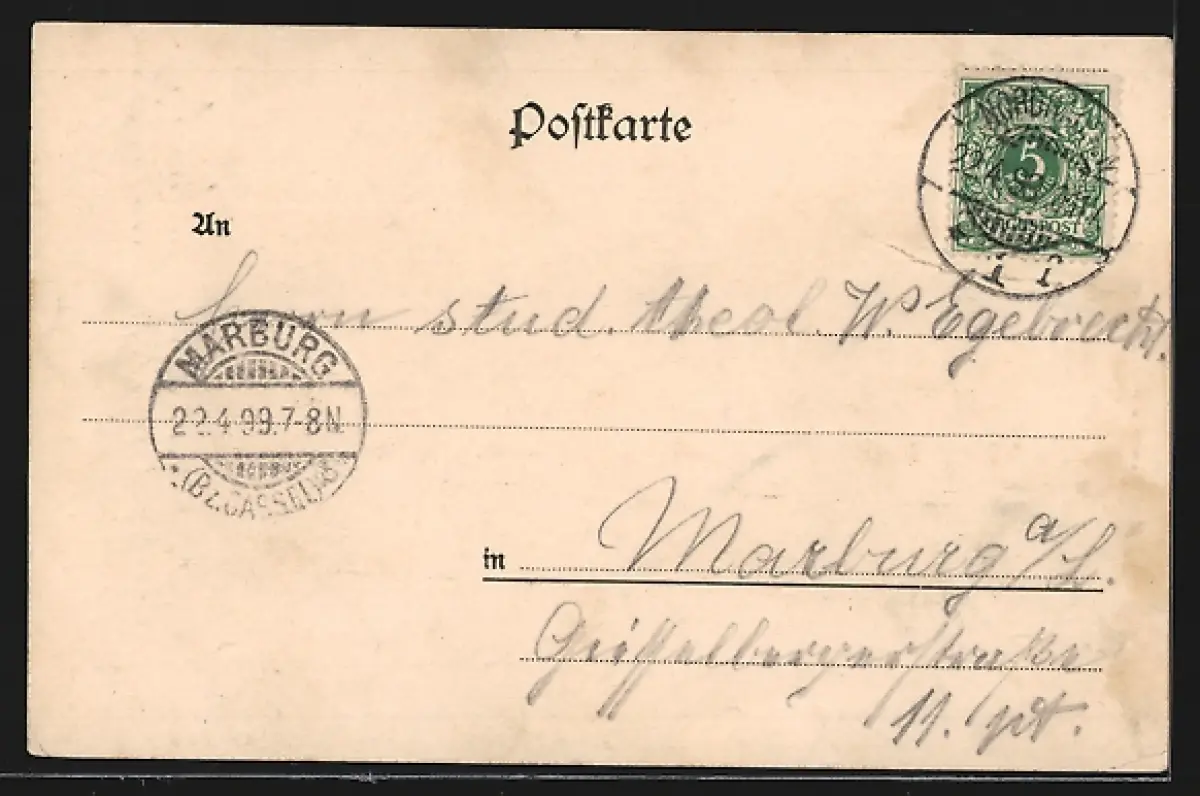 Postkarte
5
REICHSPOST
An
Herrn stud. theol. W. Egebrecht.
MARBURG
22.4.99.7-8N.
(Bz. CASSEL)
in Marburg a/L.
11. pt.